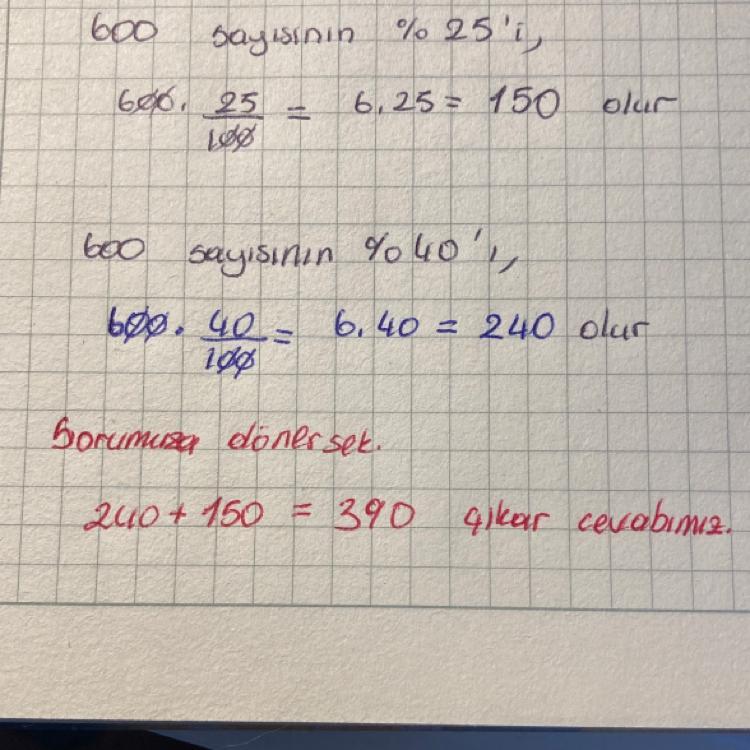 600 sayısının %25'i,
600. 25/100 = 6.25 = 150 olur
600 sayısının %40'ı,
600. 40/100 = 6.40 = 240 olur
Sorumuza dönersek.
240 + 150 = 390 çıkar cevabımız.